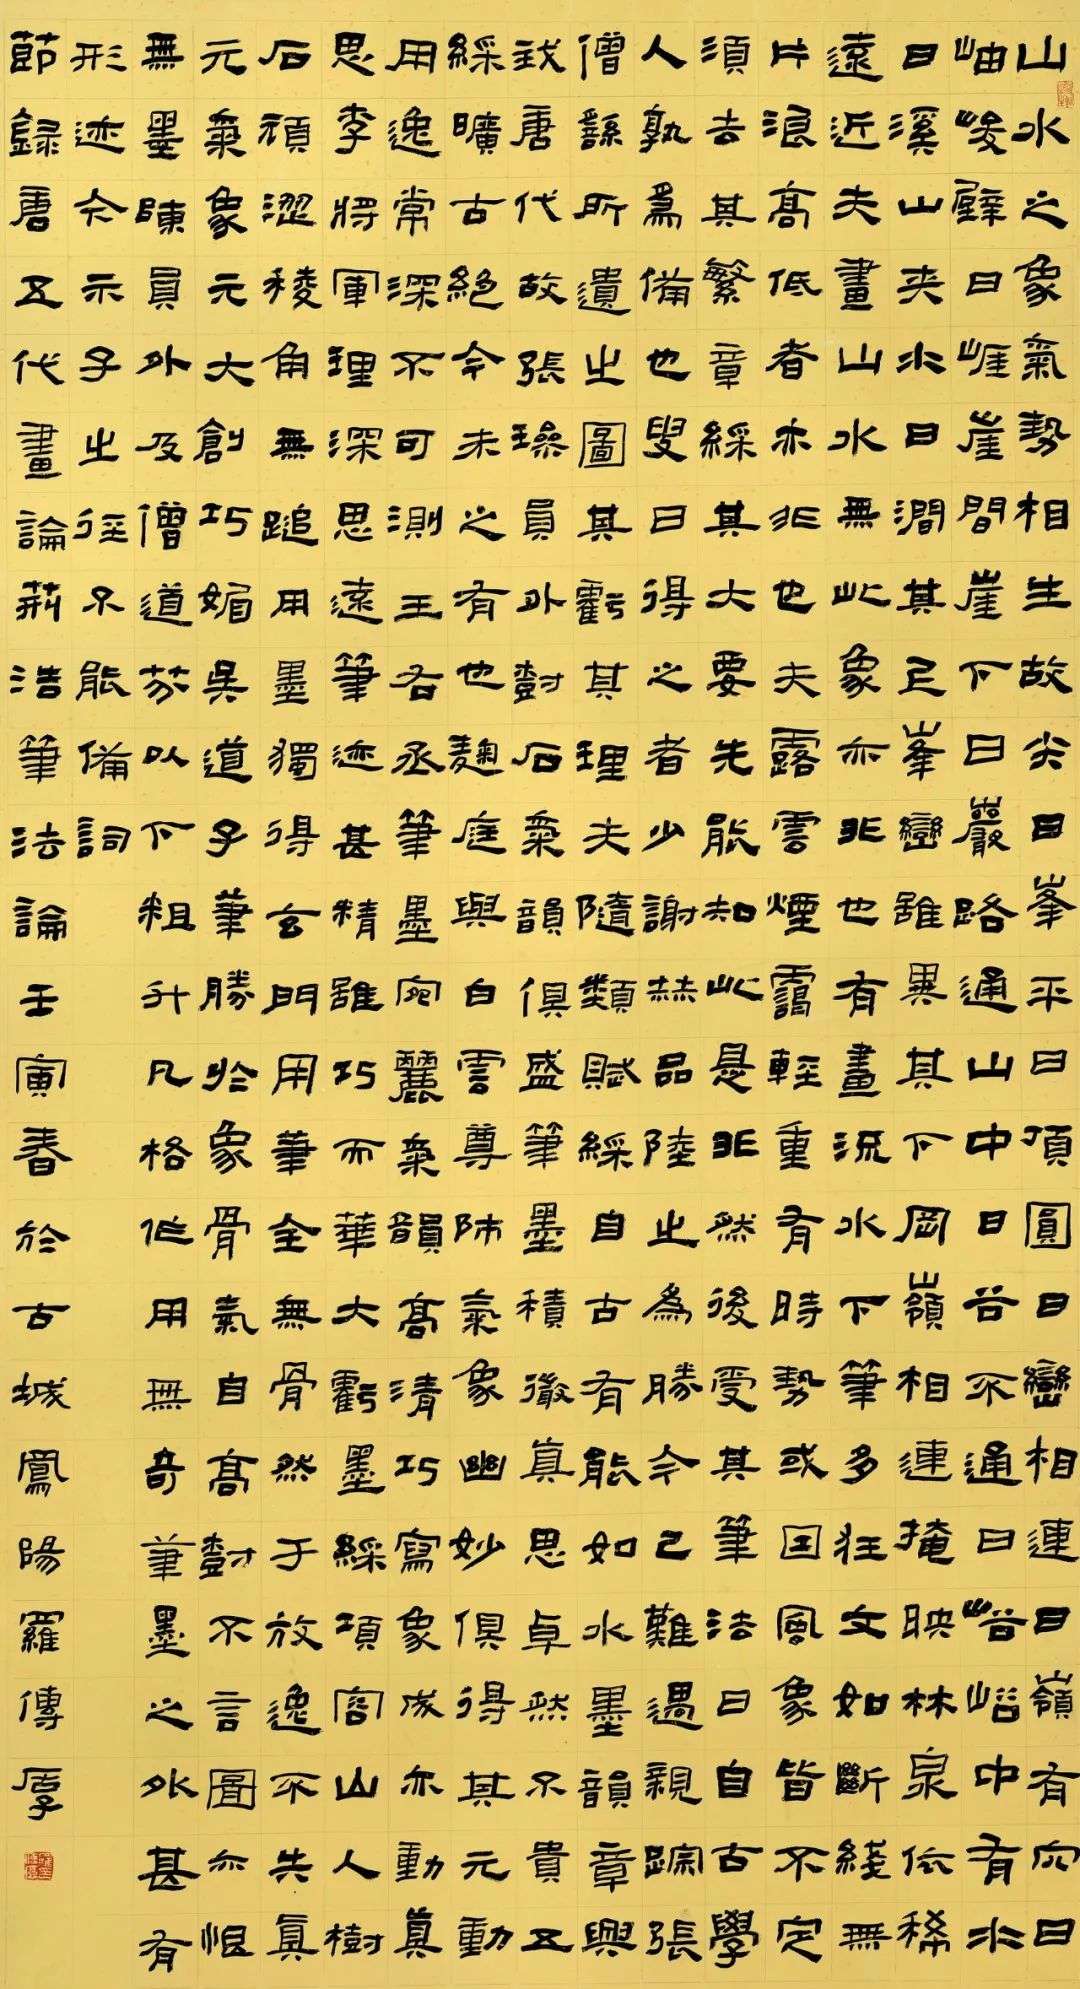 山水之象氣勢相生故尖曰峯平曰頂圓曰巒相連曰嶺有穴曰
岫峻壁曰崖崖間崖下曰巖路通山中曰谷不通曰峪峪中有水
曰溪山夾水曰澗其上峯巒雖異其下岡嶺相連掩映林泉依稀
遠近夫畫山水無此象亦非也有畫流水下筆多狂文如斷綫無
片浪高低者亦非也夫露雲煙靄輕重有時勢或因風象皆不定
須去其繁章綵其大要先能知此是非然後受其筆法曰自古學
人孰爲備也叟曰得之者少謝赫品陸之爲勝今已難遇親蹤張
僧繇所遺之圖其虧其理夫隨類賦綵自古有能如水墨韻章興
我唐代故張璪員外樹石氣韻俱盛筆墨積微真思卓然不貴五
綵曠古絕今未之有也麴庭與白雲尊師氣象幽妙俱得其元動
用逸常深不可測王右丞筆墨宛麗氣韻高清巧寫象成亦動真
思李將軍理深思遠筆迹甚精雖巧而華大虧墨綵項容山人樹
石頑澀稜角無用墨獨得玄門用筆全無骨然于放逸不失真
元氣象元大創巧媚吳道子筆勝於象骨氣自高樹不言圖亦恨
無墨陳員外及僧道芬以下粗升凡格作用無奇筆墨之外甚有
形迹今示子之徑不能備詞
節錄唐五代畫論荊浩筆法論壬寅春於古城鳳陽羅傳厚